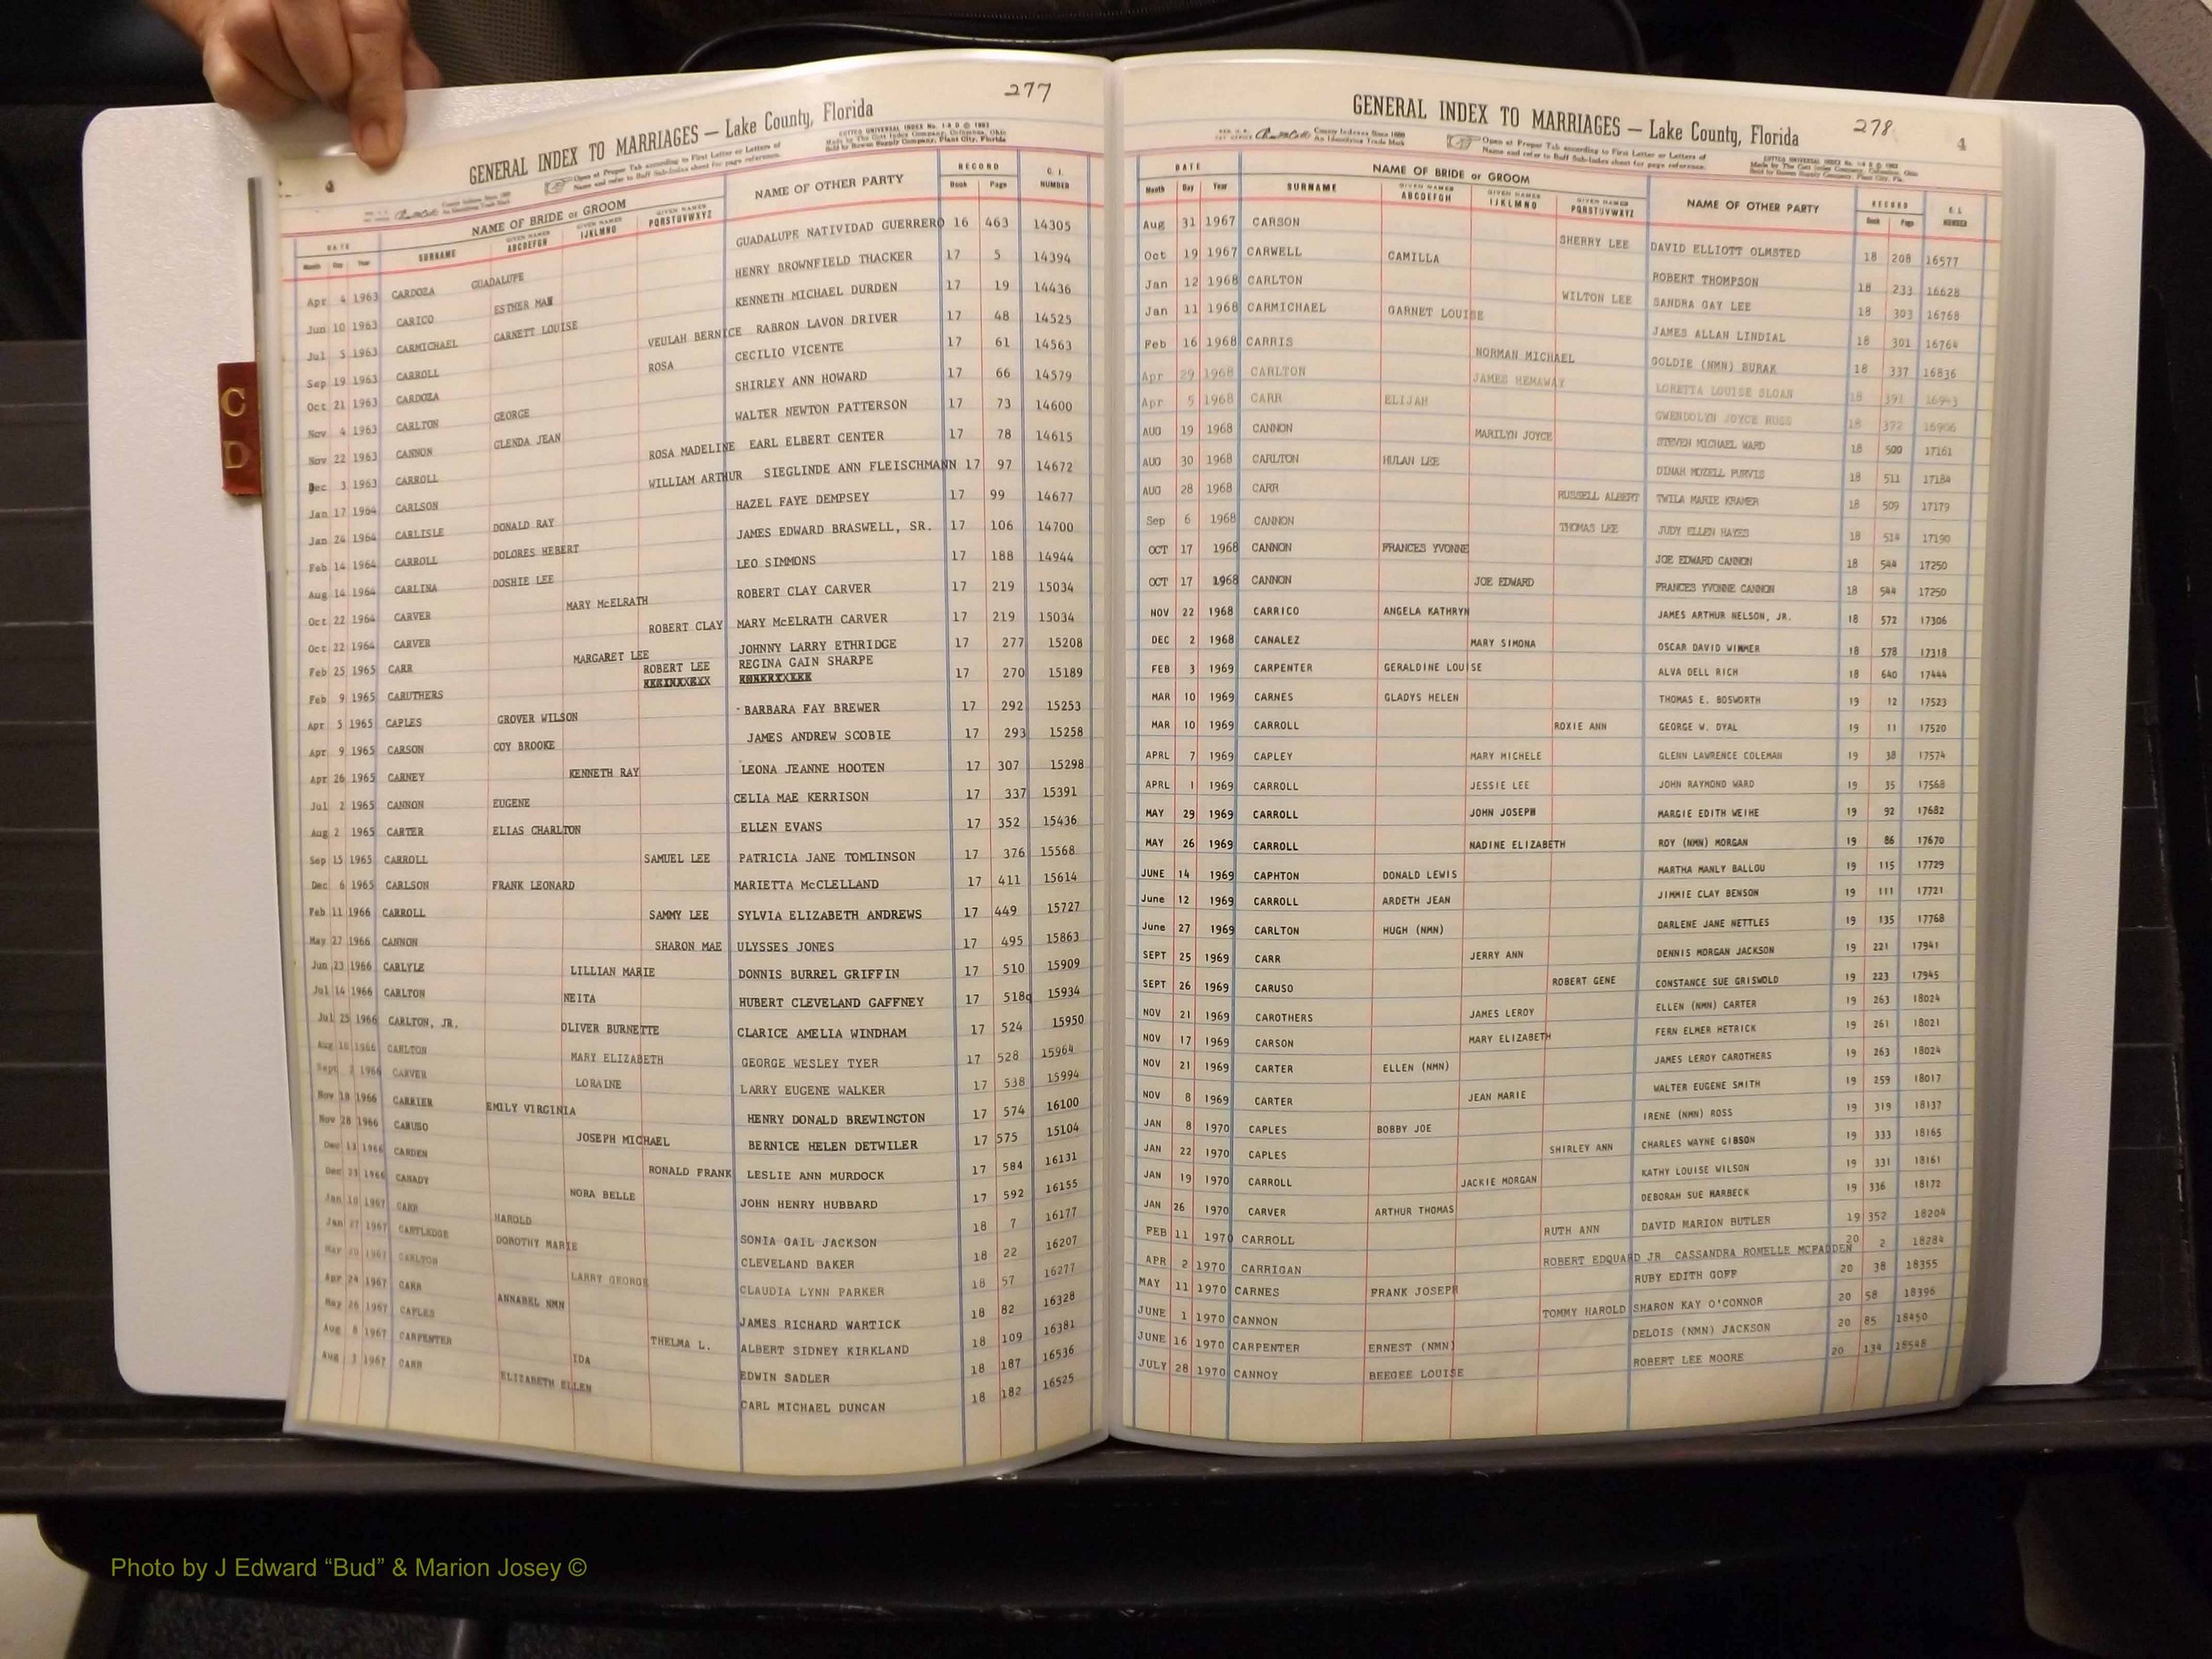 277
GENERAL INDEX TO MARRIAGES — Lake County, Florida
4
Open at Proper Tab according to First Letter or Letters of
Name and refer to Buff Sub-Index sheet for page reference.
COTT'S UNIVERSAL INDEX No. 1-8 D © 1963
Made by The Cott Index Company, Columbus, Ohio
Sold by Bowen Supply Company, Plant City, Florida
DATE NAME OF BRIDE or GROOM NAME OF OTHER PARTY RECORD G. I. NUMBER
Month Day Year SURNAME GIVEN NAMES ABCDEFGH GIVEN NAMES IJKLMNO GIVEN NAMES PQRSTUVWXYZ Book Page
Apr 4 1963 CARDOZA GUADALUPE GUADALUPE NATIVIDAD GUERRERO 16 463 14305
Jun 10 1963 CARICO ESTHER MAE HENRY BROWNFIELD THACKER 17 5 14394
Jul 5 1963 CARMICHAEL GARNETT LOUISE KENNETH MICHAEL DURDEN 17 19 14436
Sep 19 1963 CARROLL VEULAH BERNICE RABRON LAVON DRIVER 17 48 14525
Oct 21 1963 CARDOZA ROSA CECILIO VICENTE 17 61 14563
Nov 4 1963 CARLTON GEORGE SHIRLEY ANN HOWARD 17 66 14579
Nov 22 1963 CANNON GLENDA JEAN WALTER NEWTON PATTERSON 17 73 14600
Dec 3 1963 CARROLL ROSA MADELINE EARL ELBERT CENTER 17 78 14615
Jan 17 1964 CARLSON WILLIAM ARTHUR SIEGLINDE ANN FLEISCHMANN 17 97 14672
Jan 24 1964 CARLISLE DONALD RAY HAZEL FAYE DEMPSEY 17 99 14677
Feb 14 1964 CARROLL DOLORES HEBERT JAMES EDWARD BRASWELL, SR. 17 106 14700
Aug 14 1964 CARLINA DOSHIE LEE LEO SIMMONS 17 188 14944
Oct 22 1964 CARVER MARY McELRATH ROBERT CLAY CARVER 17 219 15034
Oct 22 1964 CARVER ROBERT CLAY MARY McELRATH CARVER 17 219 15034
Feb 25 1965 CARR MARGARET LEE JOHNNY LARRY ETHRIDGE 17 277 15208
Feb 9 1965 CARUTHERS ROBERT LEE REGINA GAIN SHARPE 17 270 15189
Apr 5 1965 CAPLES GROVER WILSON BARBARA FAY BREWER 17 292 15253
Apr 9 1965 CARSON COY BROOKE JAMES ANDREW SCOBIE 17 293 15258
Apr 26 1965 CARNEY KENNETH RAY LEONA JEANNE HOOTEN 17 307 15298
Jul 2 1965 CANNON EUGENE CELIA MAE KERRISON 17 337 15391
Aug 2 1965 CARTER ELIAS CHARLTON ELLEN EVANS 17 352 15436
Sep 15 1965 CARROLL SAMUEL LEE PATRICIA JANE TOMLINSON 17 376 15568
Dec 6 1965 CARLSON FRANK LEONARD MARIETTA McCLELLAND 17 411 15614
Feb 11 1966 CARROLL SAMMY LEE SYLVIA ELIZABETH ANDREWS 17 449 15727
May 27 1966 CANNON SHARON MAE ULYSSES JONES 17 495 15863
Jun 23 1966 CARLYLE LILLIAN MARIE DONNIS BURREL GRIFFIN 17 510 15909
Jul 14 1966 CARLTON NEITA HUBERT CLEVELAND GAFFNEY 17 518 15934
Jul 25 1966 CARLTON, JR. OLIVER BURNETTE CLARICE AMELIA WINDHAM 17 524 15950
Aug 10 1966 CARLTON MARY ELIZABETH GEORGE WESLEY TYER 17 528 15964
Sept 2 1966 CARVER LORAINE LARRY EUGENE WALKER 17 538 15994
Nov 18 1966 CARRIER EMILY VIRGINIA HENRY DONALD BREWINGTON 17 574 16100
Nov 28 1966 CARUSO JOSEPH MICHAEL BERNICE HELEN DETWILER 17 575 15104
Dec 13 1966 CARDEN RONALD FRANK LESLIE ANN MURDOCK 17 584 16131
Dec 23 1966 CANADY NORA BELLE JOHN HENRY HUBBARD 17 592 16155
Jan 10 1967 CARR HAROLD SONIA GAIL JACKSON 18 7 16177
Jan 27 1967 CARTLEDGE DOROTHY MARIE CLEVELAND BAKER 18 22 16207
Mar 20 1967 CARLTON LARRY GEORGE CLAUDIA LYNN PARKER 18 57 16277
Apr 24 1967 CARR ANNABEL NMN JAMES RICHARD WARTICK 18 82 16328
May 26 1967 CAPLES THELMA L. ALBERT SIDNEY KIRKLAND 18 109 16381
Aug 8 1967 CARPENTER IDA EDWIN SADLER 18 187 16536
Aug 3 1967 CARR ELIZABETH ELLEN CARL MICHAEL DUNCAN 18 182 16525
C
D
278
GENERAL INDEX TO MARRIAGES — Lake County, Florida
4
County Indexes Since 1888
An Identifying Trade Mark
Open at Proper Tab according to First Letter or Letters of
Name and refer to Buff Sub-Index sheet for page reference.
DATE NAME OF BRIDE or GROOM NAME OF OTHER PARTY RECORD G. I. NUMBER
Month Day Year SURNAME GIVEN NAMES ABCDEFGH GIVEN NAMES IJKLMNO GIVEN NAMES PQRSTUVWXYZ Book Page
Aug 31 1967 CARSON SHERRY LEE DAVID ELLIOTT OLMSTED 18 208 16577
Oct 19 1967 CARWELL CAMILLA ROBERT THOMPSON 18 233 16628
Jan 12 1968 CARLTON WILTON LEE SANDRA GAY LEE 18 303 16768
Jan 11 1968 CARMICHAEL GARNET LOUISE JAMES ALLAN LINDIAL 18 301 16764
Feb 16 1968 CARRIS NORMAN MICHAEL GOLDIE (NMN) BURAK 18 337 16836
Apr 29 1968 CARLTON JAMES HEMAWAY LORETTA LOUISE SLOAN 18 391 16943
Apr 5 1968 CARR ELIJAH GWENDOLYN JOYCE HUSS 18 372 16906
AUG 19 1968 CANNON MARILYN JOYCE STEVEN MICHAEL WARD 18 500 17161
AUG 30 1968 CARLTON HULAN LEE DINAH MOZELL PURVIS 18 511 17184
AUG 28 1968 CARR RUSSELL ALBERT TWILA MARIE KRAMER 18 509 17179
Sep 6 1968 CANNON THOMAS LEE JUDY ELLEN HAYES 18 514 17190
OCT 17 1968 CANNON FRANCES YVONNE JOE EDWARD CANNON 18 544 17250
OCT 17 1968 CANNON JOE EDWARD FRANCES YVONNE CANNON 18 544 17250
NOV 22 1968 CARRICO ANGELA KATHRYN JAMES ARTHUR NELSON, JR. 18 572 17306
DEC 2 1968 CANALEZ MARY SIMONA OSCAR DAVID WIMMER 18 578 17318
FEB 3 1969 CARPENTER GERALDINE LOUISE ALVA DELL RICH 18 640 17444
MAR 10 1969 CARNES GLADYS HELEN THOMAS E. BOSWORTH 19 12 17523
MAR 10 1969 CARROLL ROXIE ANN GEORGE W. DYAL 19 11 17520
APRL 7 1969 CAPLEY MARY MICHELE GLENN LAWRENCE COLEMAN 19 38 17574
APRL 1 1969 CARROLL JESSIE LEE JOHN RAYMOND WARD 19 35 17568
MAY 29 1969 CARROLL JOHN JOSEPH MARGIE EDITH WEIHE 19 92 17682
MAY 26 1969 CARROLL NADINE ELIZABETH ROY (NMN) MORGAN 19 86 17670
JUNE 14 1969 CAPHTON DONALD LEWIS MARTHA MANLY BALLOU 19 115 17729
June 12 1969 CARROLL ARDETH JEAN JIMMIE CLAY BENSON 19 111 17721
June 27 1969 CARLTON HUGH (NMN) DARLENE JANE NETTLES 19 135 17768
SEPT 25 1969 CARR JERRY ANN DENNIS MORGAN JACKSON 19 221 17941
SEPT 26 1969 CARUSO ROBERT GENE CONSTANCE SUE GRISWOLD 19 223 17945
NOV 21 1969 CAROTHERS JAMES LEROY ELLEN (NMN) CARTER 19 263 18024
NOV 17 1969 CARSON MARY ELIZABETH FERN ELMER HETRICK 19 261 18021
NOV 21 1969 CARTER ELLEN (NMN) JAMES LEROY CAROTHERS 19 263 18024
NOV 8 1969 CARTER JEAN MARIE WALTER EUGENE SMITH 19 259 18017
JAN 8 1970 CAPLES BOBBY JOE IRENE (NMN) ROSS 19 319 18137
JAN 22 1970 CAPLES SHIRLEY ANN CHARLES WAYNE GIBSON 19 333 18165
JAN 19 1970 CARROLL JACKIE MORGAN KATHY LOUISE WILSON 19 331 18161
JAN 26 1970 CARVER ARTHUR THOMAS DEBORAH SUE HARBECK 19 336 18172
FEB 11 1970 CARROLL RUTH ANN DAVID MARION BUTLER 19 352 18204
APR 2 1970 CARRIGAN ROBERT EDQUARD JR CASSANDRA ROMELLE MCFADDEN 20 2 18284
MAY 11 1970 CARNES FRANK JOSEPH RUBY EDITH GOFF 20 38 18355
JUNE 1 1970 CANNON TOMMY HAROLD SHARON KAY O'CONNOR 20 58 18396
JUNE 16 1970 CARPENTER ERNEST (NMN) DELOIS (NMN) JACKSON 20 85 18450
JULY 28 1970 CANNOY BEEGEE LOUISE ROBERT LEE MOORE 20 134 18548
Photo by J Edward “Bud” & Marion Josey ©